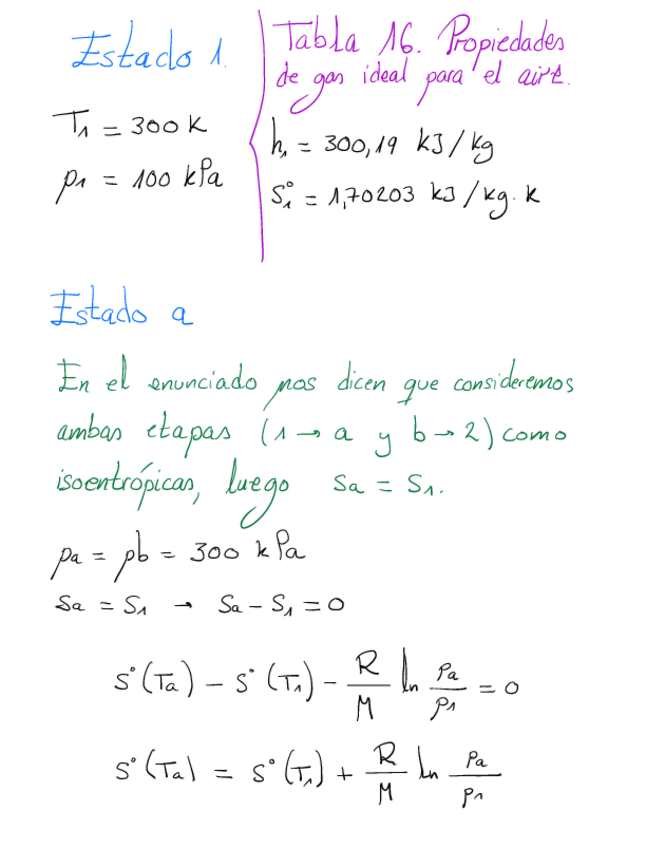 Estado 1.
T₁ = 300 K
p₁ = 100 kPa
Tabla 16. Propiedades
de gas ideal para el aire.
h₁ = 300,19 kJ/kg
S₁° = 1,70203 kJ/kg·K
Estado a
En el enunciado nos dicen que consideremos
ambas etapas (1 → a y b → 2) como
isoentrópicas, luego Sa = S₁.
pa = pb = 300 kPa
Sa = S₁ → Sa - S₁ = 0
S°(Ta) - S°(T₁) - R/M ln pa/p₁ = 0
S°(Ta) = S°(T₁) + R/M ln pa/p₁